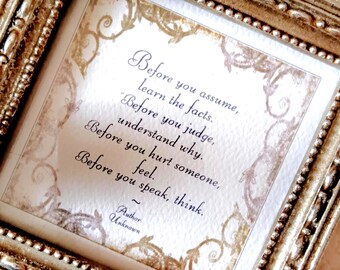 Before you assume,
learn the facts.
Before you judge,
understand why.
Before you hurt someone,
feel.
Before you speak, think.
~
Author
Unknown